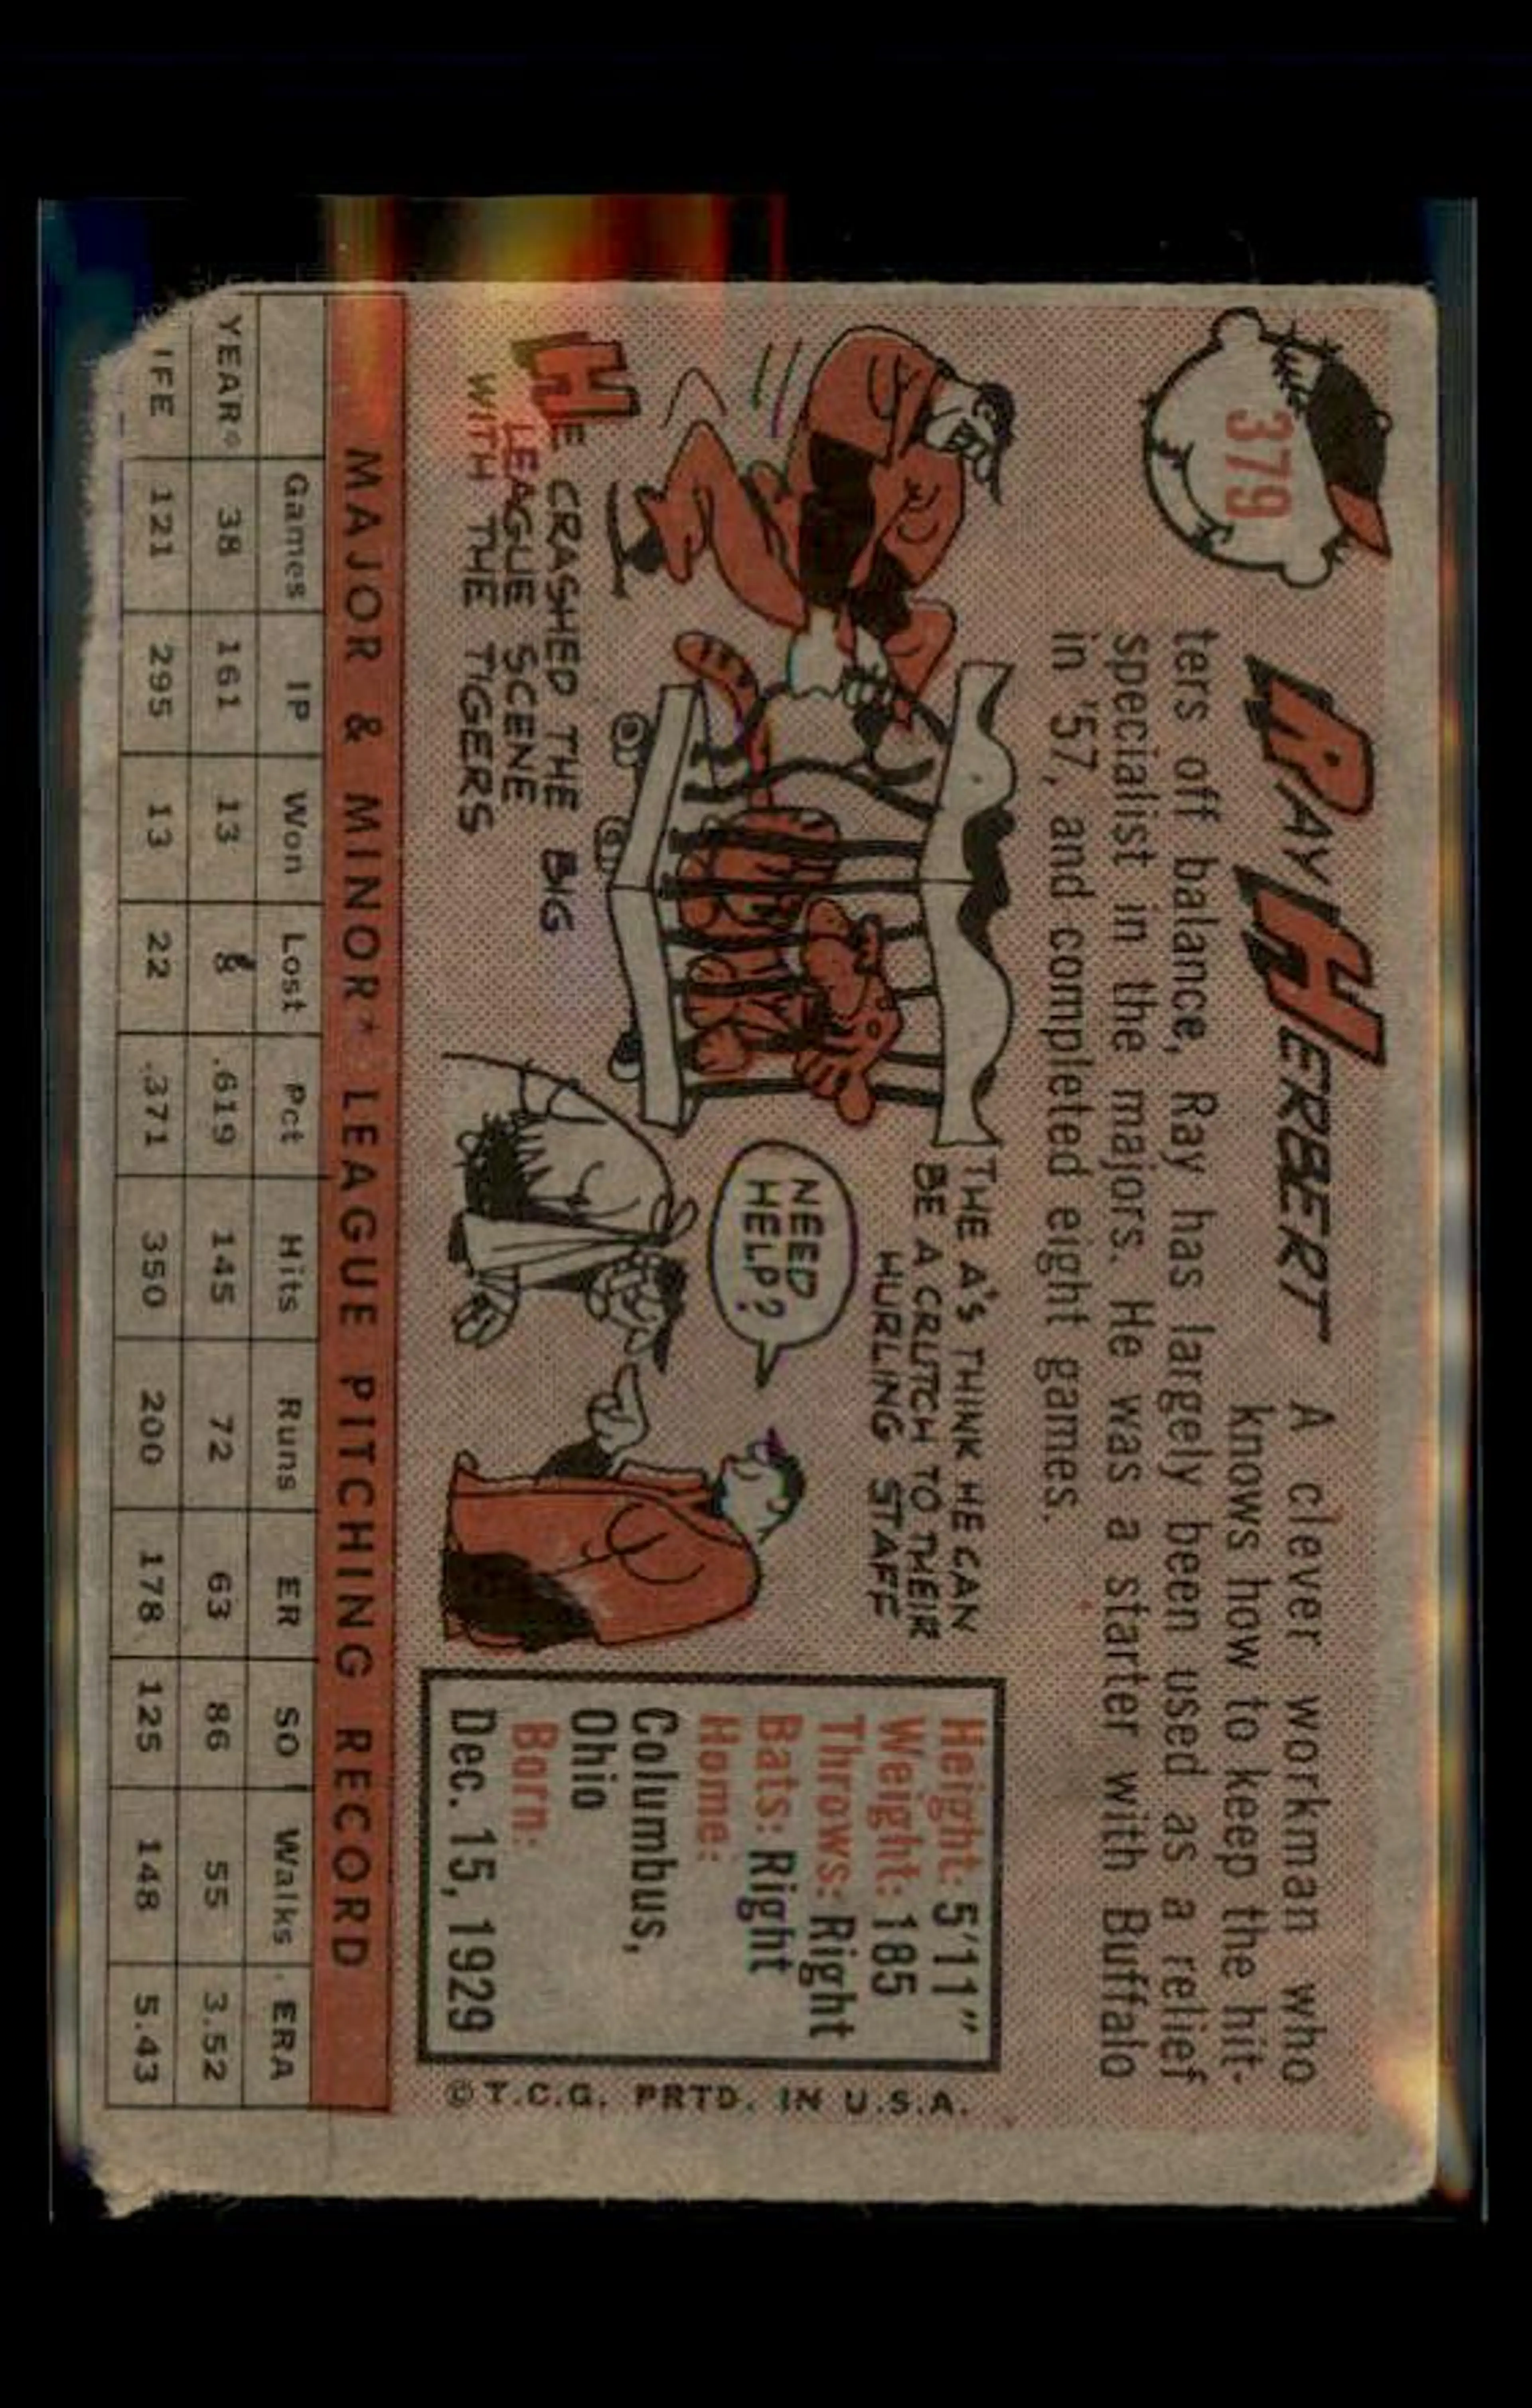 379
RAY HERBERT
A clever workman who
knows how to keep the hit-
ters off balance, Ray has largely been used as a relief
specialist in the majors. He was a starter with Buffalo
in '57, and completed eight games.
HE CRASHED THE BIG
LEAGUE SCENE
WITH THE TIGERS
THE A'S THINK HE CAN
BE A CRUTCH TO THEIR
HURLING STAFF
NEED
HELP?
Height: 5'11"
Weight: 185
Throws: Right
Bats: Right
Home:
Columbus,
Ohio
Born:
Dec. 15, 1929
© T.C.G. PRTD. IN U.S.A.
MAJOR & MINOR* LEAGUE PITCHING RECORD
Games IP Won Lost Pct Hits Runs ER SO Walks ERA
YEAR* 38 161 13 8 .619 145 72 63 86 55 3.52
IFE 121 295 13 22 .371 350 200 178 125 148 5.43